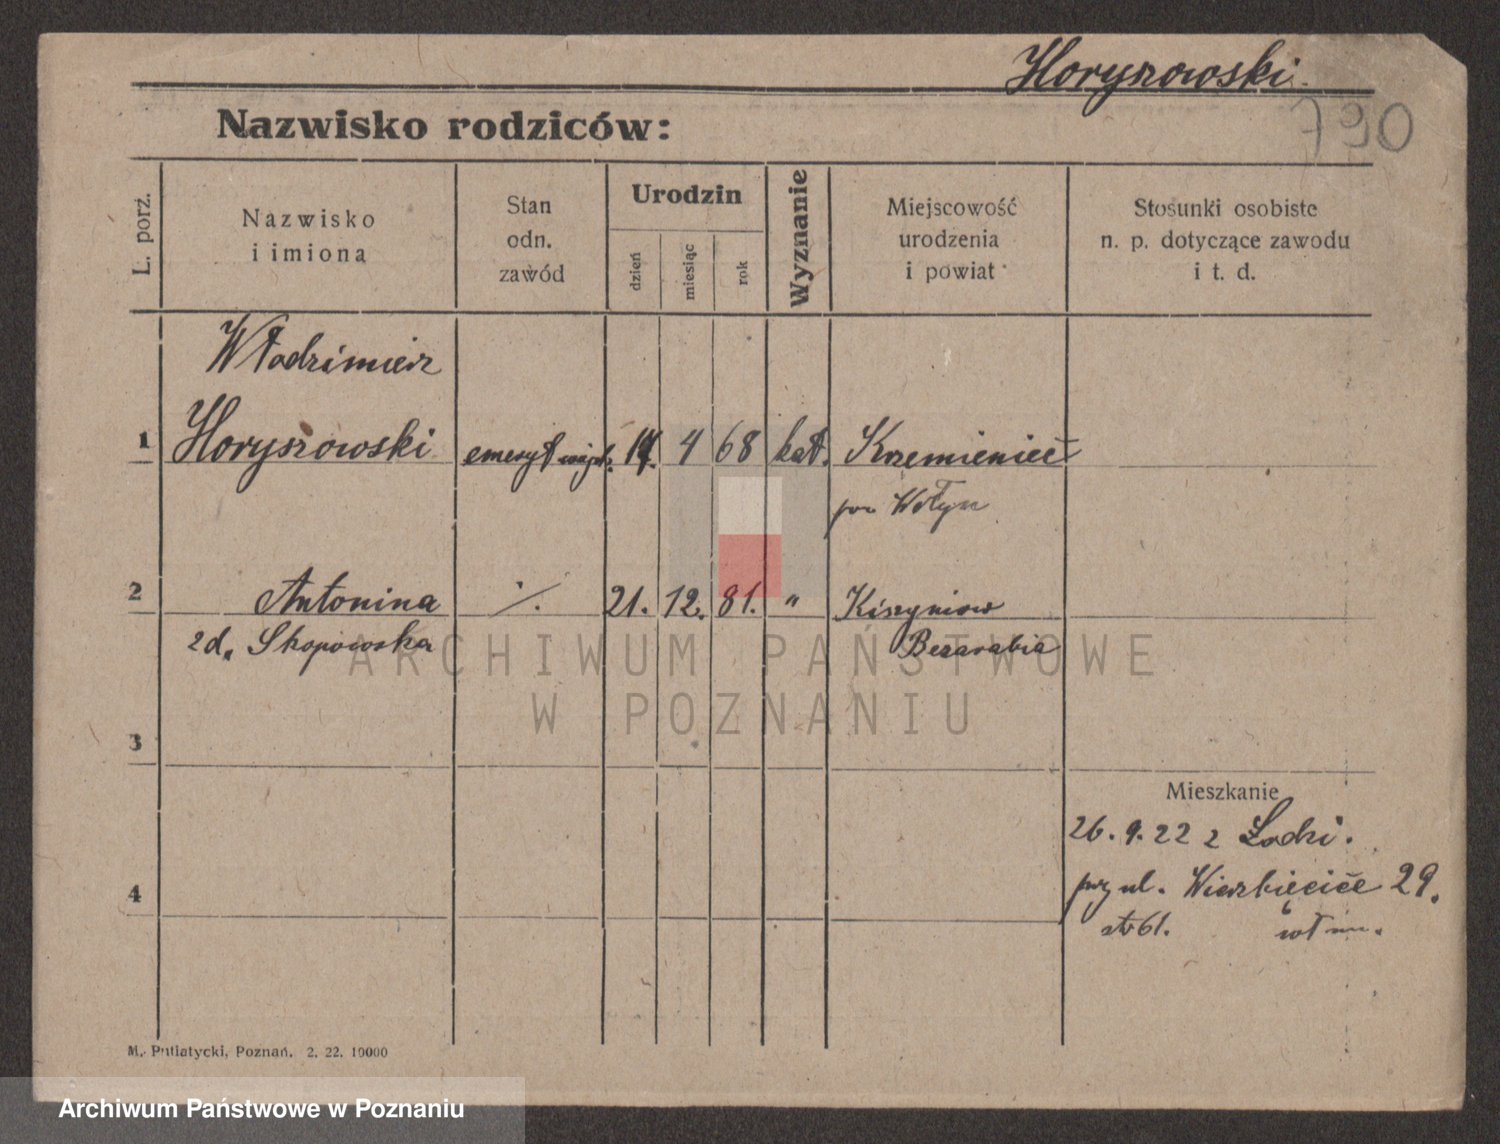 Horyszowski.
790
Nazwisko rodziców:
L. porz.
Nazwisko
i imiona
Stan
odn.
zawód
Urodzin
dzień
miesiąc
rok
Wyznanie
Miejscowość
urodzenia
i powiat
Stosunki osobiste
n. p. dotyczące zawodu
i t. d.
Włodzimierz
1 Horyszowski emeryt wojsk. 17. 4 68 kat. Krzemieniec
pow Wołyn
2 Antonina ·/. 21. 12. 81. " Kiszyniow
zd. Skopowska Bezarabia
ARCHIWUM PAŃSTWOWE
W POZNANIU
3
Mieszkanie
26.9.22 z Łodzi.
4
przy ul. Wierzbięcice 29.
str 61.
M. Putiatycki, Poznań. 2. 22. 10000
Archiwum Państwowe w Poznaniu